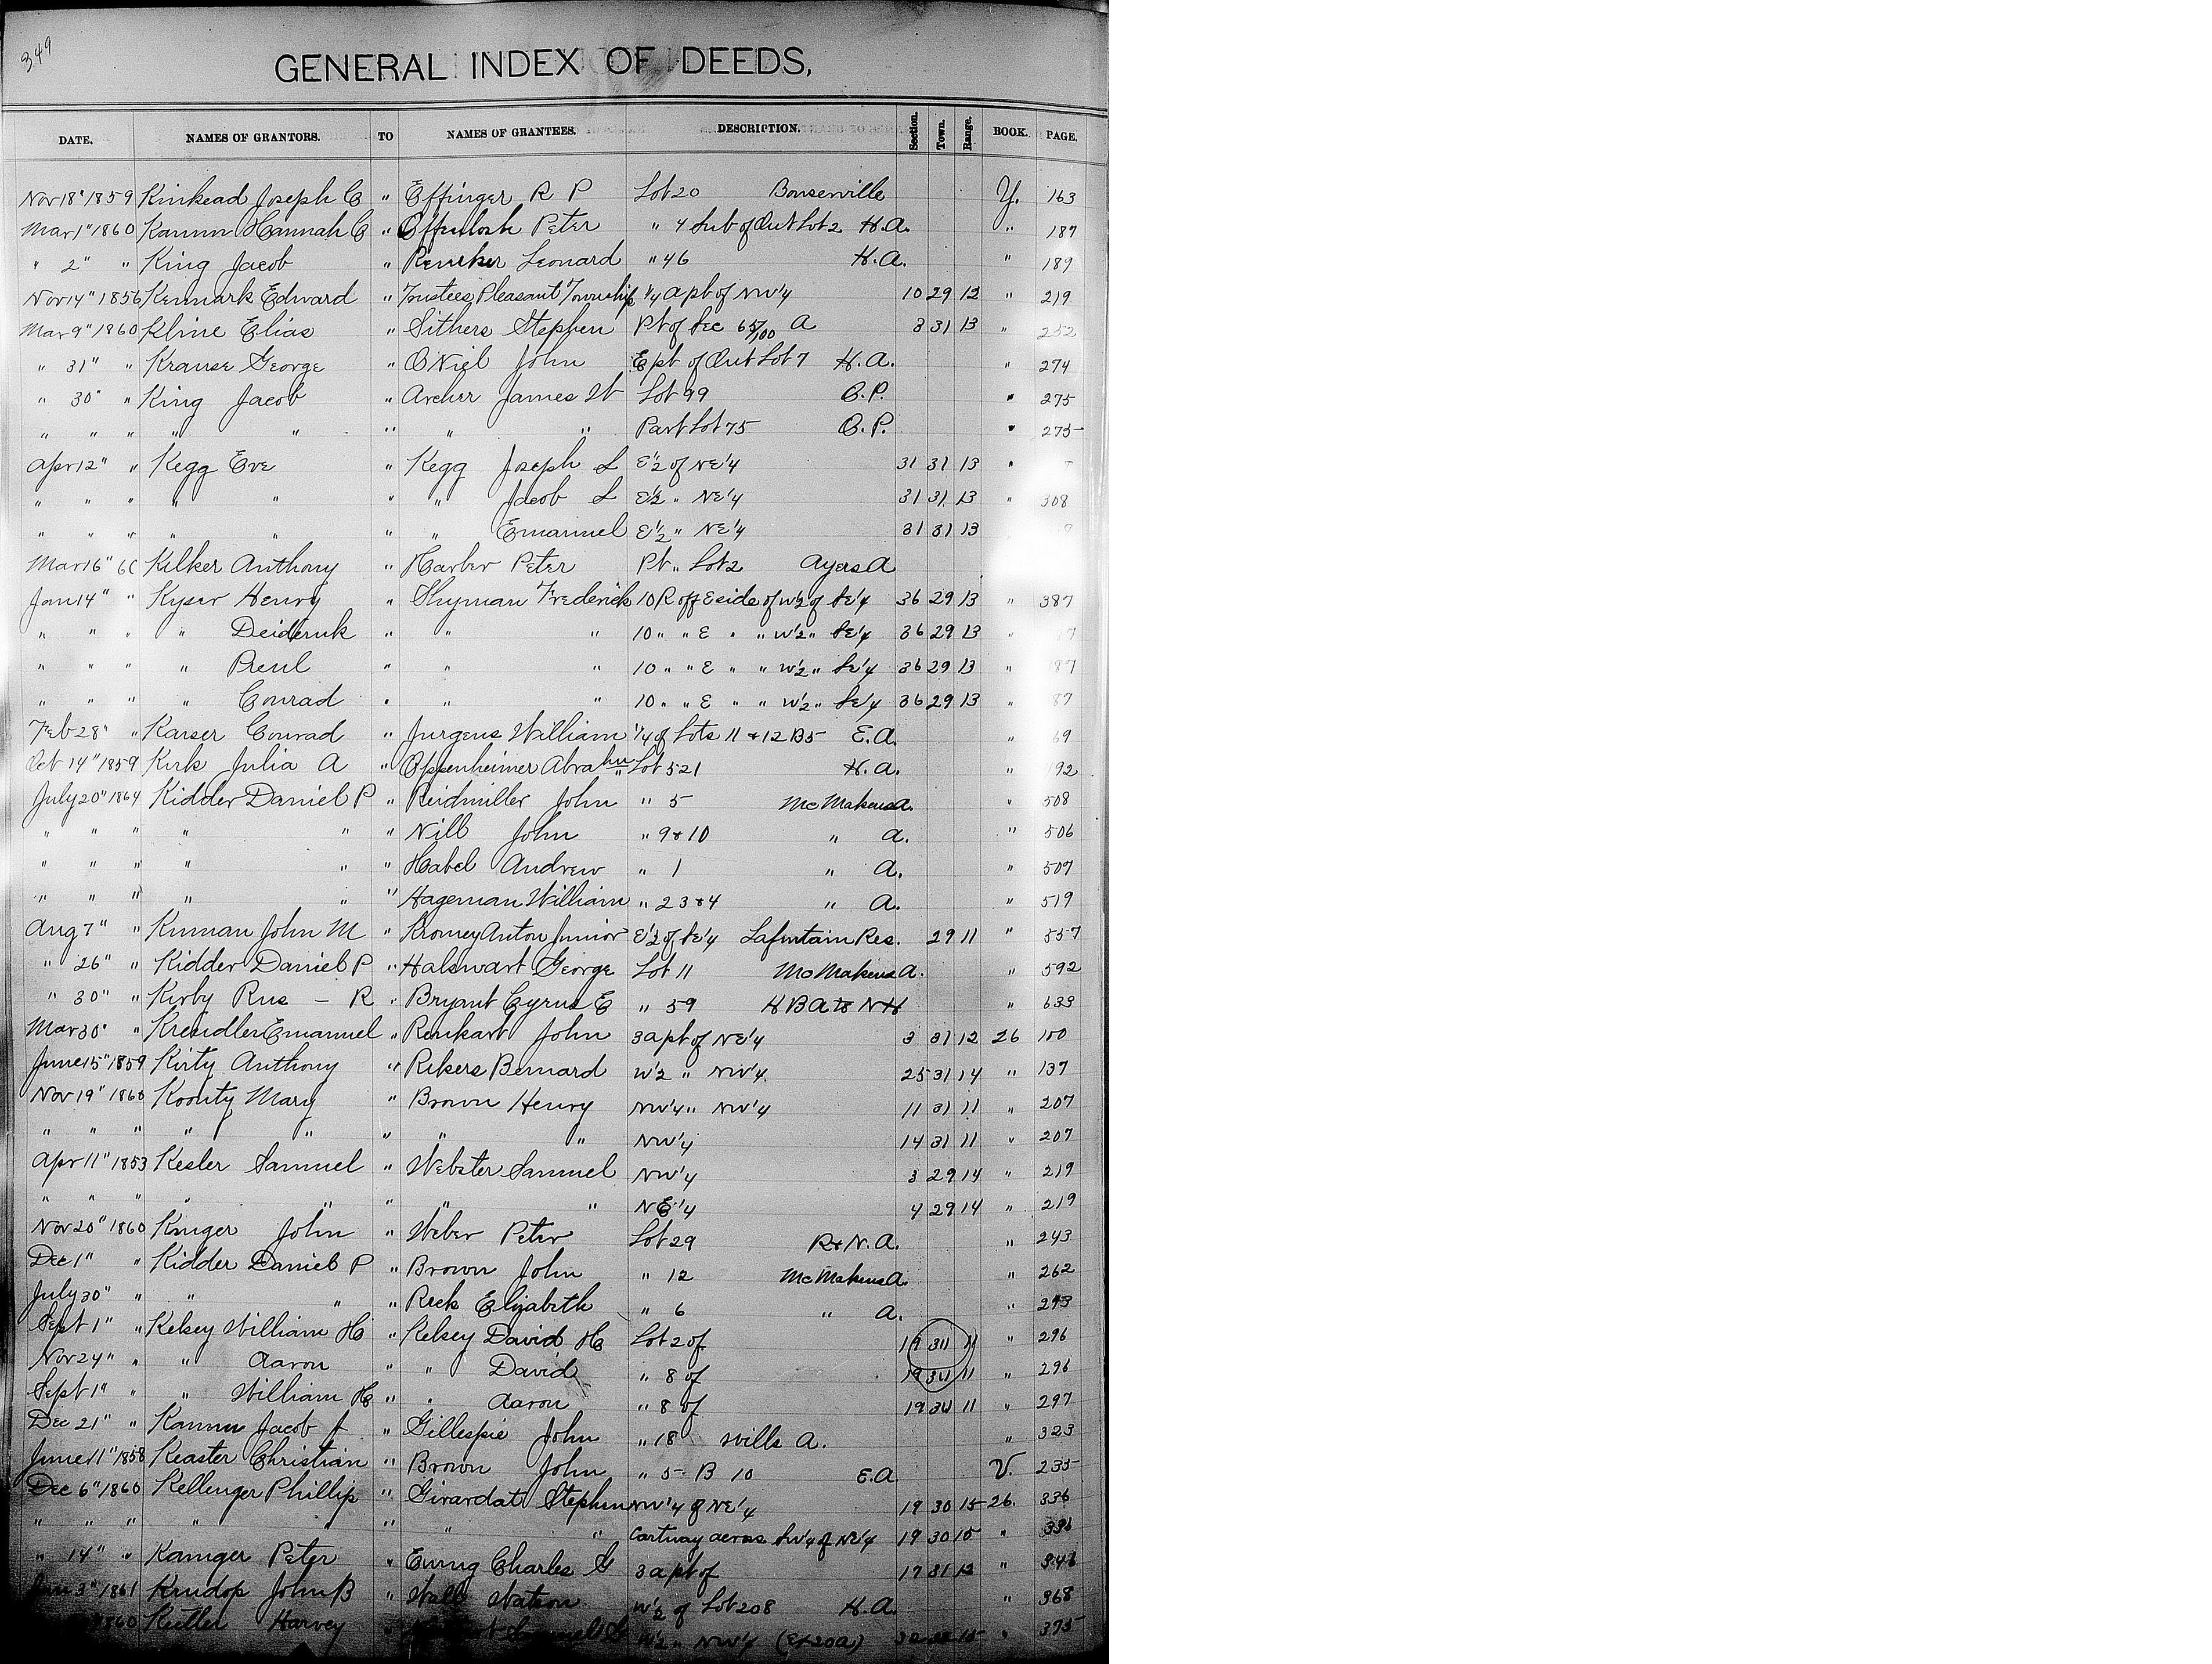 349
GENERAL INDEX OF DEEDS,
DATE. NAMES OF GRANTORS. TO NAMES OF GRANTEES. DESCRIPTION. Section. Town. Range. BOOK. PAGE.
Nov 18" 1859 Kinkead Joseph C " Effinger R P Lot 20 Bouserville Y. 163
Mar 1" 1860 Kamm Hannah C " Peter " 4 Sub of Out Lot 2 H.A. " 187
" 2" " King Jacob " Leonard " 46 H.A. " 189
Nov 14" 1856 Kennark Edward " Trustees Pleasant Township 1/4 a pt of NW 1/4 10 29 12 " 219
Mar 9" 1860 Kline Elias " Sithers Stephen Pt of Sec 65/100 A 3 31 13 " 252
" 31" " Krause George " O'Niel John E pt of Out Lot 7 H.A. " 274
" 30" " King Jacob " Archer James W Lot 99 O.P. " 275
" " " " " " " " Part Lot 75 O.P. " 275
Apr 12" " Kegg Eve " Kegg Joseph L E 1/2 of NE 1/4 31 31 13 "
" " " " " " " Jacob L E 1/2 " NE 1/4 31 31 13 " 308
" " " " " " " Emanuel E 1/2 " NE 1/4 31 31 13
Mar 16" 60 Kilker Anthony " Harber Peter Pt " Lot 2 Ayers A
Jan 14" " Kyser Henry " Shyman Frederick 10 R off E side of W 1/2 of SE 1/4 36 29 13 " 387
" " " " " " " 10 " " E " " W 1/2 " SE 1/4 36 29 13 " 87
" " " " " " " 10 " " E " " W 1/2 " SE 1/4 36 29 13 " 87
" " " " Conrad " " " 10 " " E " " W 1/2 " SE 1/4 36 29 13 " 87
Feb 28" " Kaiser Conrad " Jurgens William 1/4 of Lots 11 & 12 B 5 E.A. " 69
Oct 14" 1859 Kirk Julia A " Oppenheimer Abrahm Lot 521 H.A. " 192
July 20" 1864 Kidder Daniel P " Reidmiller John " 5 McMakens A. " 508
" " " " " " Nill John " 9 & 10 " A. " 506
" " " " " " Habel Andrew " 1 " A. " 507
" " " " " " Hageman William " 2 3 & 4 " A. " 519
Aug 7" " Kinman John M " Kromey Anton Junior E 1/2 of SE 1/4 Lafontain Res. 29 11 " 557
" 26" " Kidder Daniel P " Halswart George Lot 11 McMakens A. " 592
" 30" " Kirby Rus - R " Bryant Cyrus E " 59 H B A to N H " 633
Mar 30" " Kreidler Emanuel " Renkart John 3 a pt of NE 1/4 3 31 12 26 100
June 15" 1859 Kirty Anthony " Rikers Bernard W 1/2 " NW 1/4. 25 31 14 " 137
Nov 19" 1860 Koonty Mary " Brown Henry NW 1/4 " NW 1/4 11 31 11 " 207
" " " " " " " " NW 1/4 14 31 11 " 207
Apr 11" 1853 Kesler Samuel " Webster Samuel NW 1/4 3 29 14 " 219
" " " " " " " " NE 1/4 4 29 14 " 219
Nov 20" 1860 Kruger John " Weber Peter Lot 29 R & N. A. " 243
Dec 1" " Kidder Daniel P " Brown John " 12 McMakens A. " 262
July 30" " " " " Reck Elizabeth " 6 " A. " 293
Sept 1" " Kelsey William H " Kelsey David H Lot 2 of 19 31 11 " 296
Nov 24" " " Aaron " " David " 8 of 19 11 " 296
Sept 1" " " William H " " Aaron " 8 of 19 11 " 297
Dec 21" " Kamm Jacob J " Gillespie John " 18 Wills A. " 323
June 11" 1858 Keaster Christian " Brown John " 5 - B 10 E.A. V. 235
Dec 6" 1860 Kellenger Phillip " Girardat Stephen NW 1/4 of NE 1/4 19 30 15 26. 336
" " " " " " " Cartway across SW 1/4 of NE 1/4 19 30 15 " 336
" 14" " Kamger Peter " Ewing Charles G 3 a pt of 17 31 13 "
3" 1861 Krudop John B " Wall Watson W 1/2 of Lot 208 H.A. " 368
1860 Keller Harvey " W 1/2 " NW 1/4 (Ex 20a) " 375